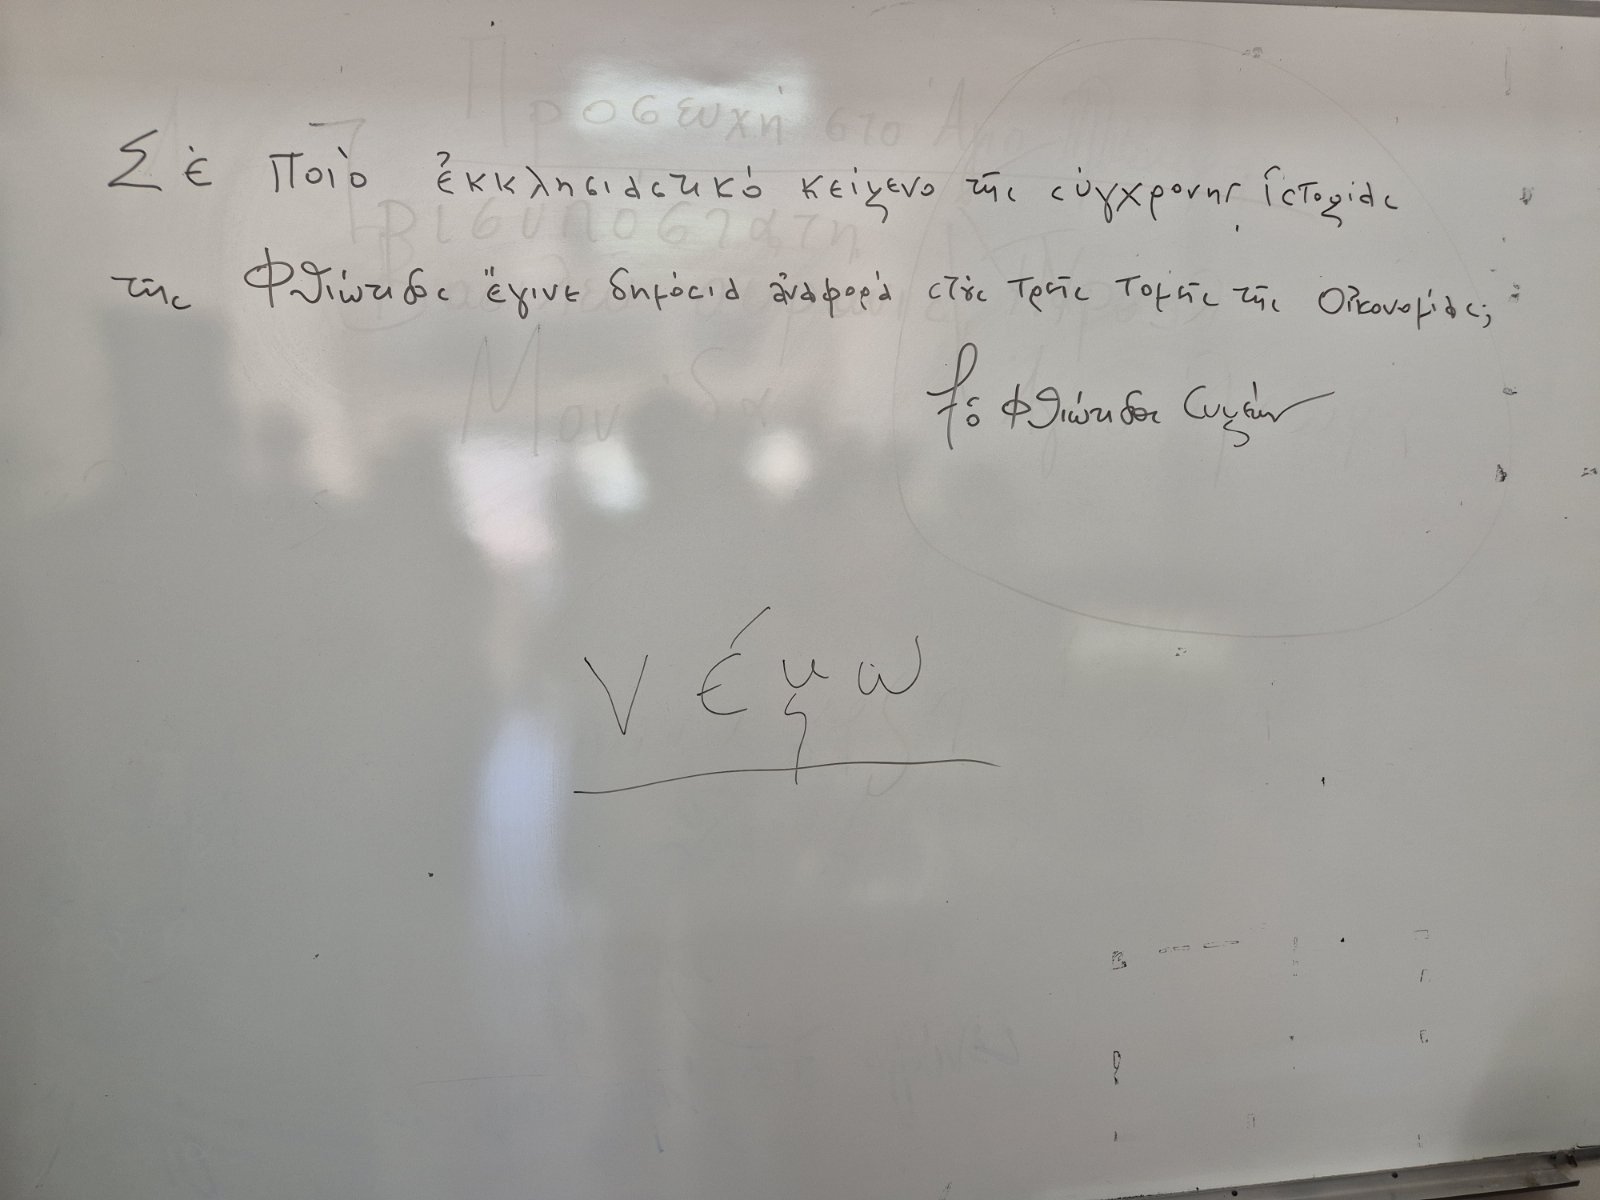 Σὲ ποιὸ ἐκκλησιαστικό κείμενο τῆς σύγχρονης Ἱστορίας
τῆς Φθιώτιδος ἔγινε δημόσια ἀναφορά στοὺς τρεῖς τομεῖς τῆς Οἰκονομίας;
† ὁ Φθιώτιδος Συμεών
Προσευχή στο
νέμω